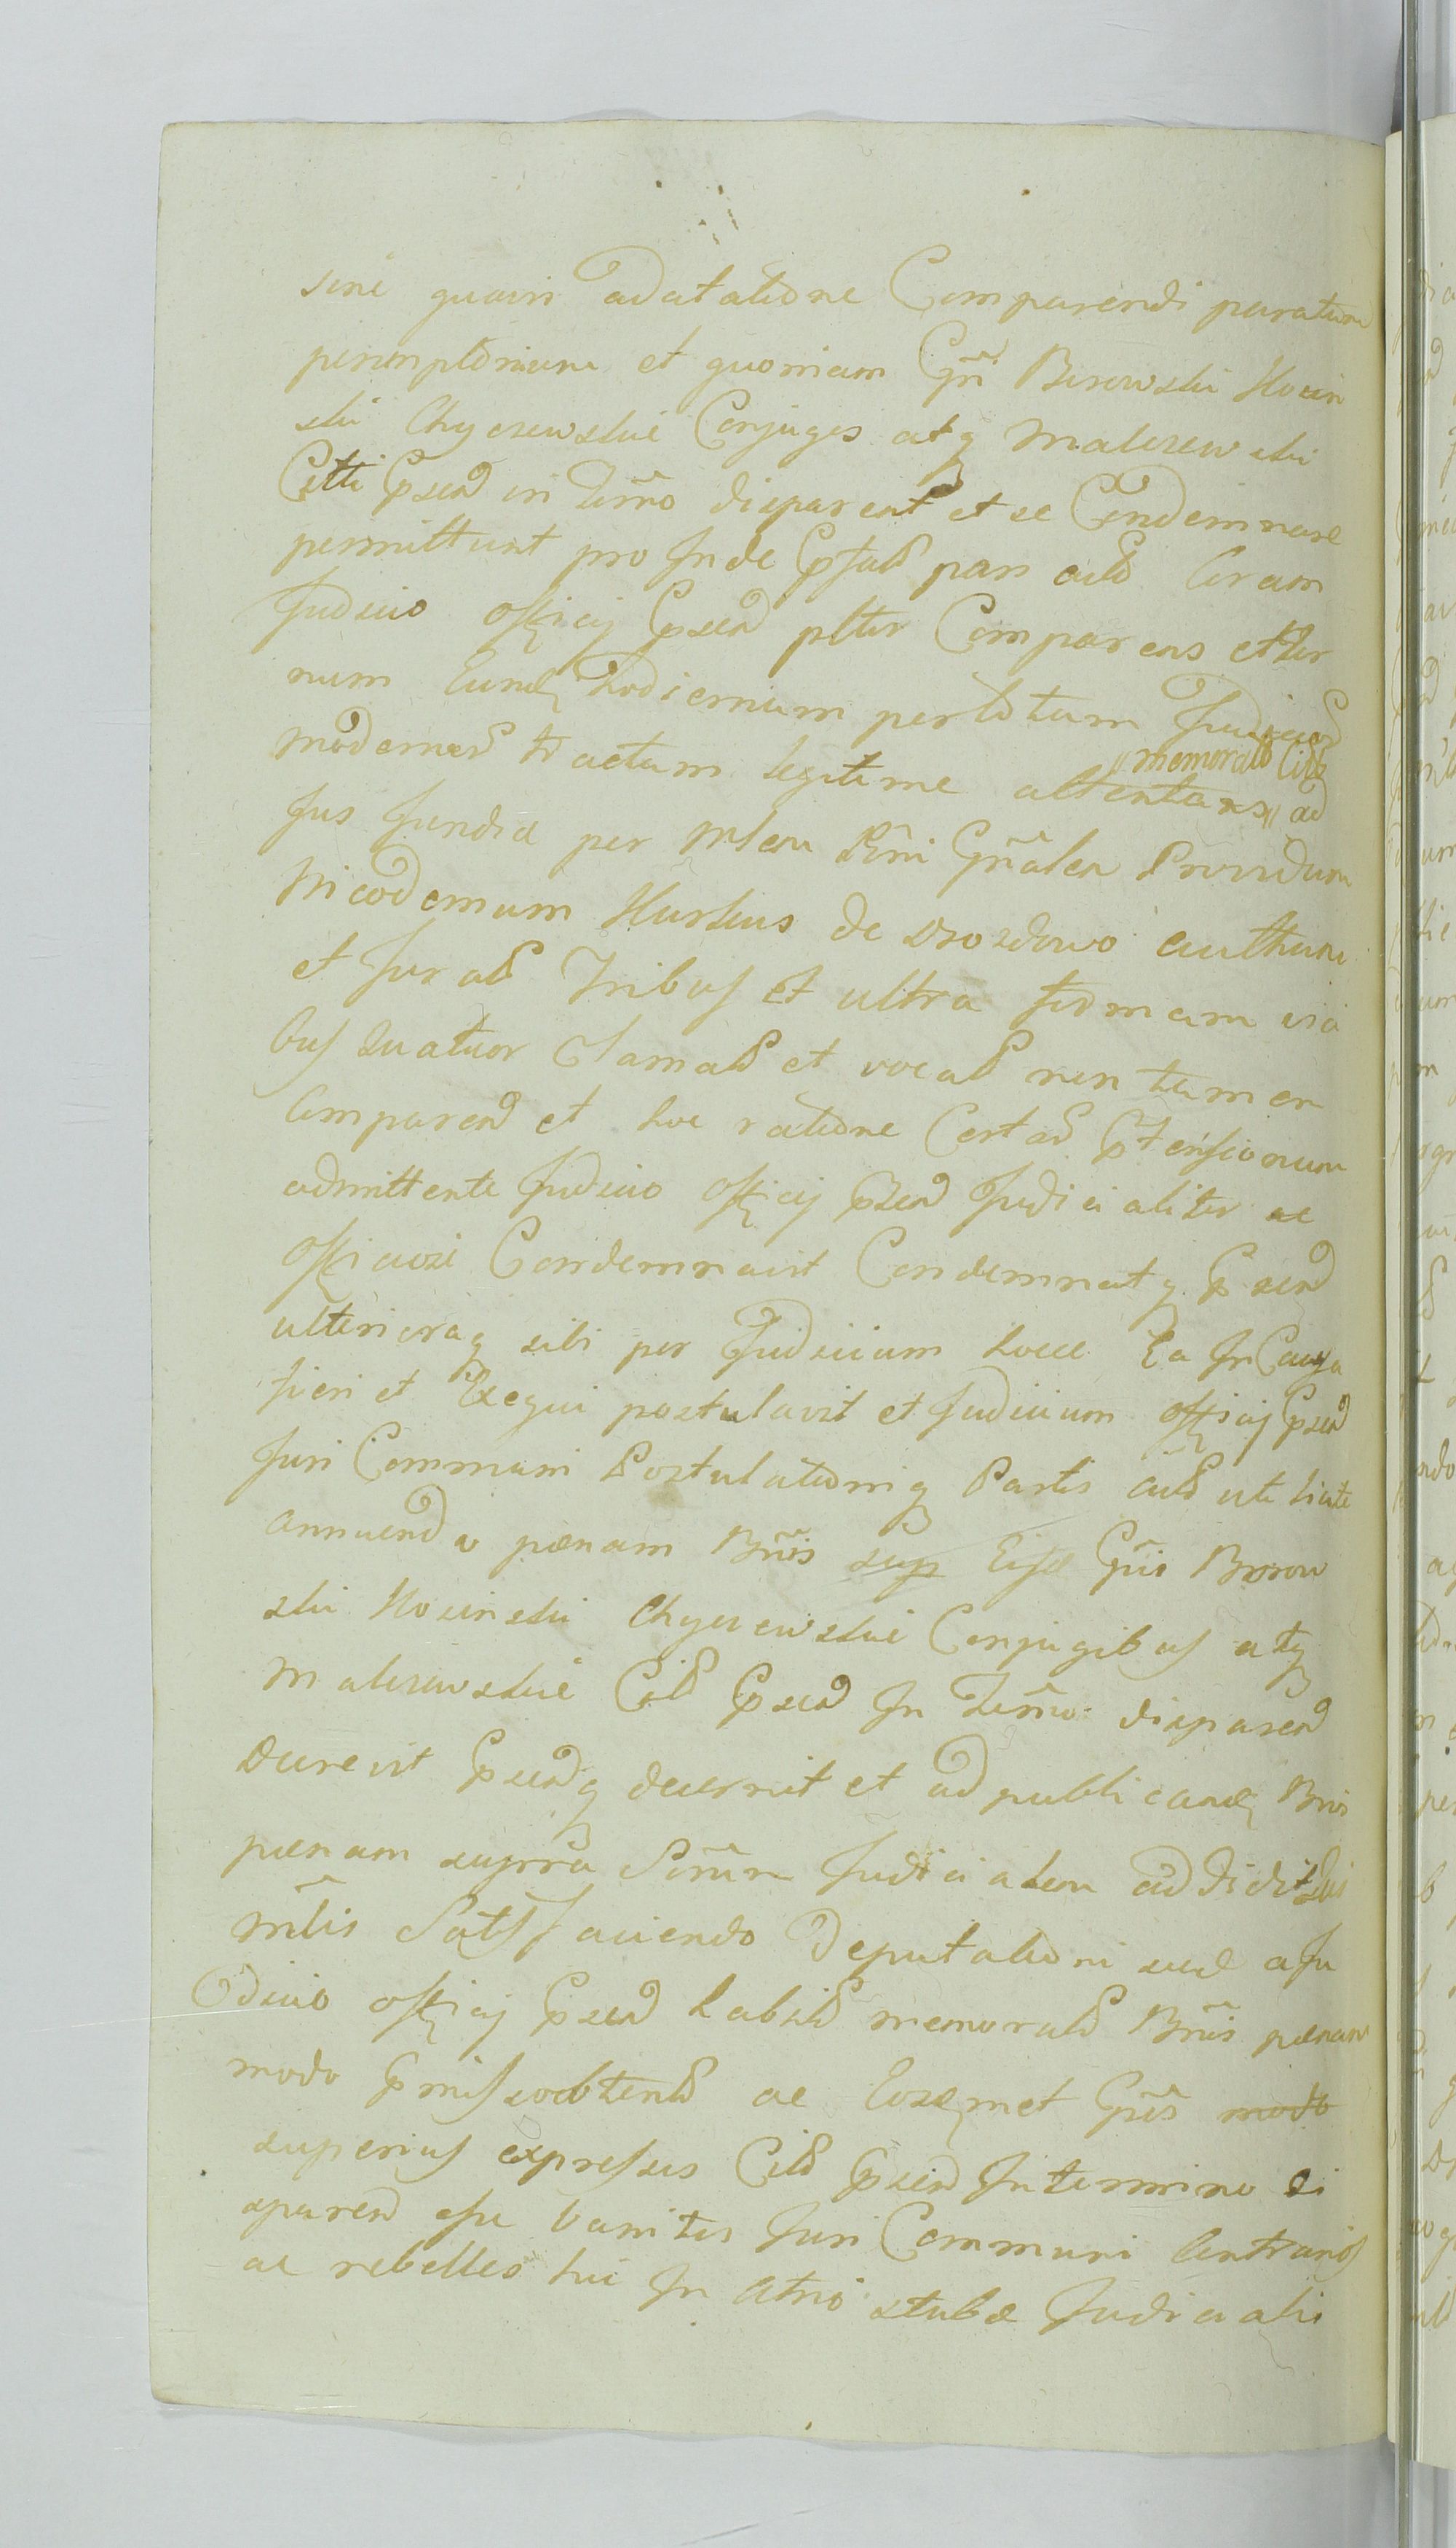 sine quavis adatatione Comparendi paratum
peremptorium et quoniam Gñi Borowski Kosin
ski Chyczewskie Conjuges atq Maleszewski
Citti Pssen in Termo disparent et se Condemnare
permittunt pro Inde Pfatt pars actt Coram
Judicio Officij Pssen pltter Comparens et ter
num Eund hodiernum perlotum Judiciis
modernis tractum legitime attentans // ad
// memoratt Citt
Jus Jundie per Mlem Rñi Gñalem Providum
Nicodemum Kurkus de Drozdowo authum
et Juratt Tribus et ultra formam vici
bus Quatuor Clamatt et vocatt non tamen
Comparen et hoc ratione Certar Ptensionum
admittente Judicio Officij Pssen Judicialiter ac
Officiose Condemnavit Condemnatq Pssen
ulterioraq sibi per Judicium hocce Ea In Causa
fieri et Exequi postulavit et Judicium Officij Pssen
Juri Communi Postulationiq Partis actt uti licite
annuendo pænam Bñis sup Eisd Gñis Borow
ski Kosinski Chyczewskie Conjugibus atq
Maleszewskie Citt Pssen In Termo disparen
Decrevit Pssenq decernit et ad publicand Bñis
pænam supra Scriptam Judicialem addidit
Mlis Satisfaciendo Deputationi suæ a Ju
dicio officij Pssen habitt memoratt Bñis pænam
modo Pmisso obtentt ac Eosdmet Gñis modo
superius expressos Citt Pssen In termino di
sparen esse banitos Juri Communi Contrarios
ac rebelles hic In Atrio stubæ Judicialis